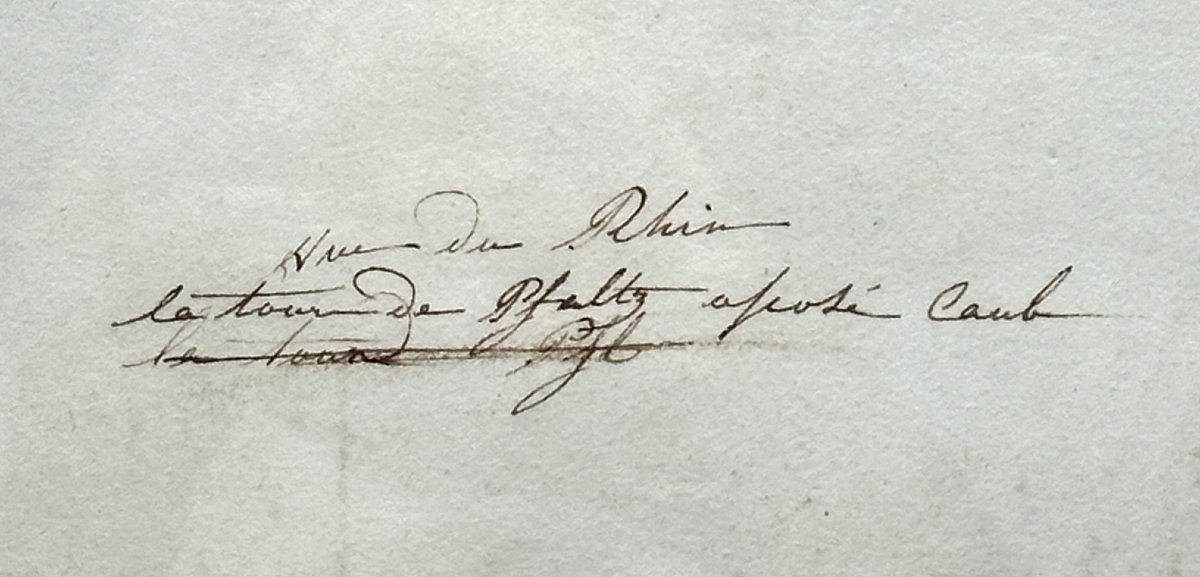 Vue du Rhin
la tour de Pfaltz aposé Caub
la tour Pf